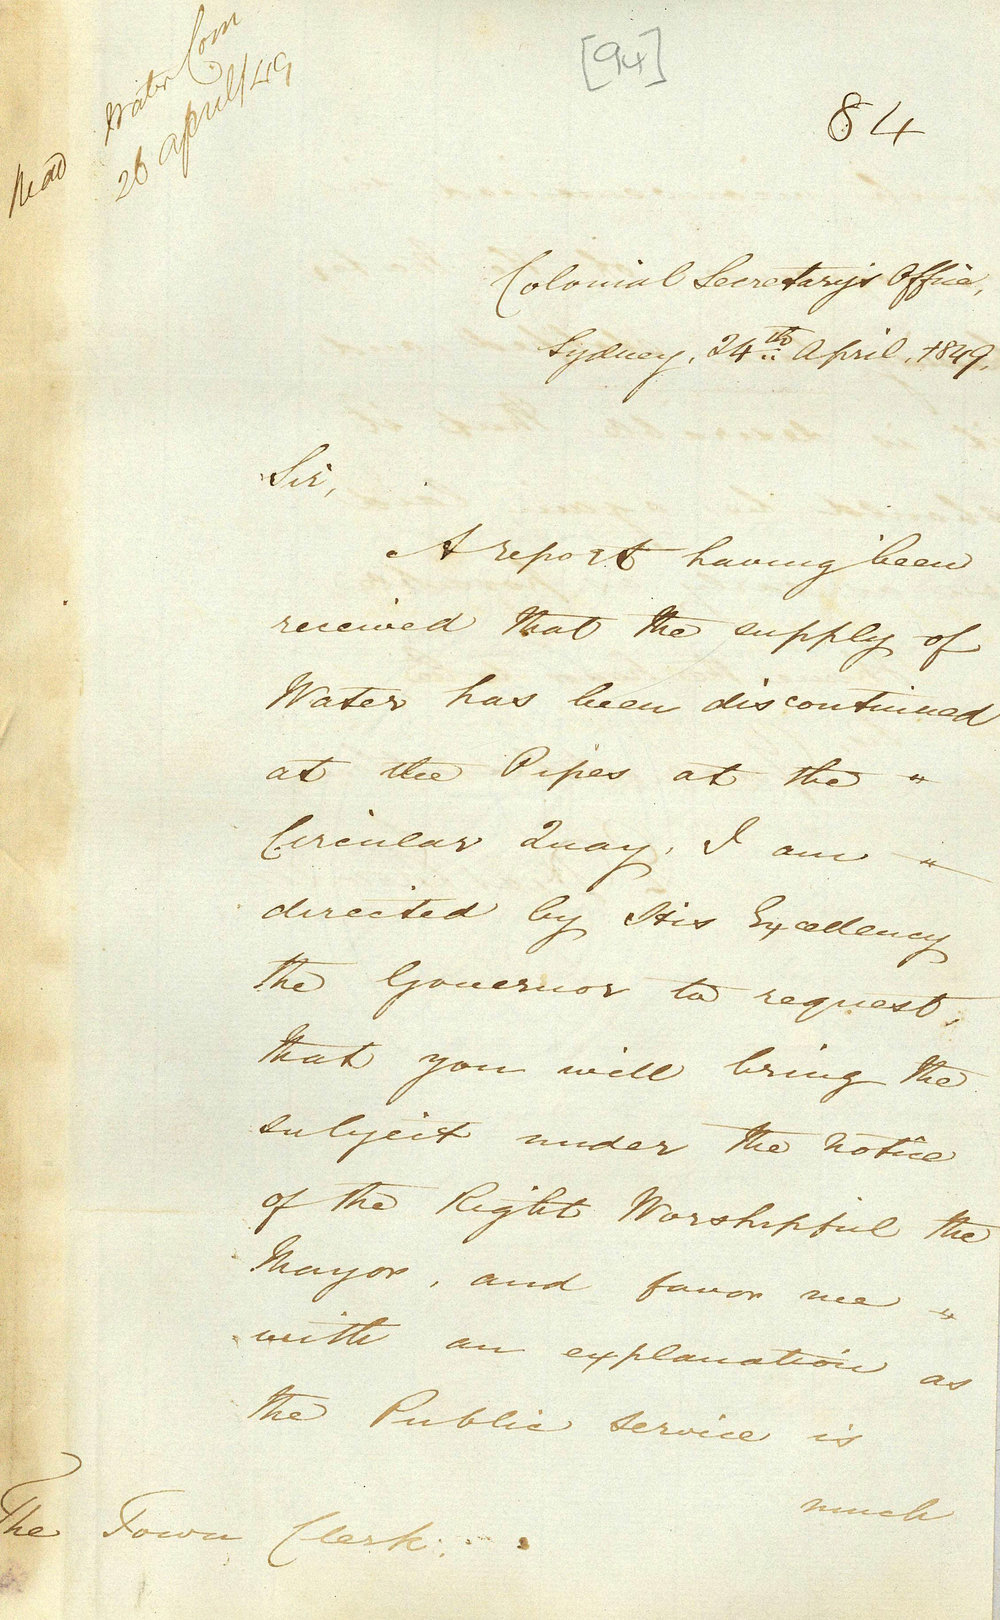 [94]
84
Read Water Com
26 April/49
Colonial Secretary's Office,
Sydney, 24th April, 1849.
Sir,
A report having been
received that the supply of
Water has been discontinued
at the Pipes at the "
Circular Quay, I am "
directed by His Excellency
the Governor to request,
that you will bring the
subject under the notice
of the Right Worshipful the
Mayor, and favor me "
with an explanation as
the Public Service is
much
The Town Clerk.